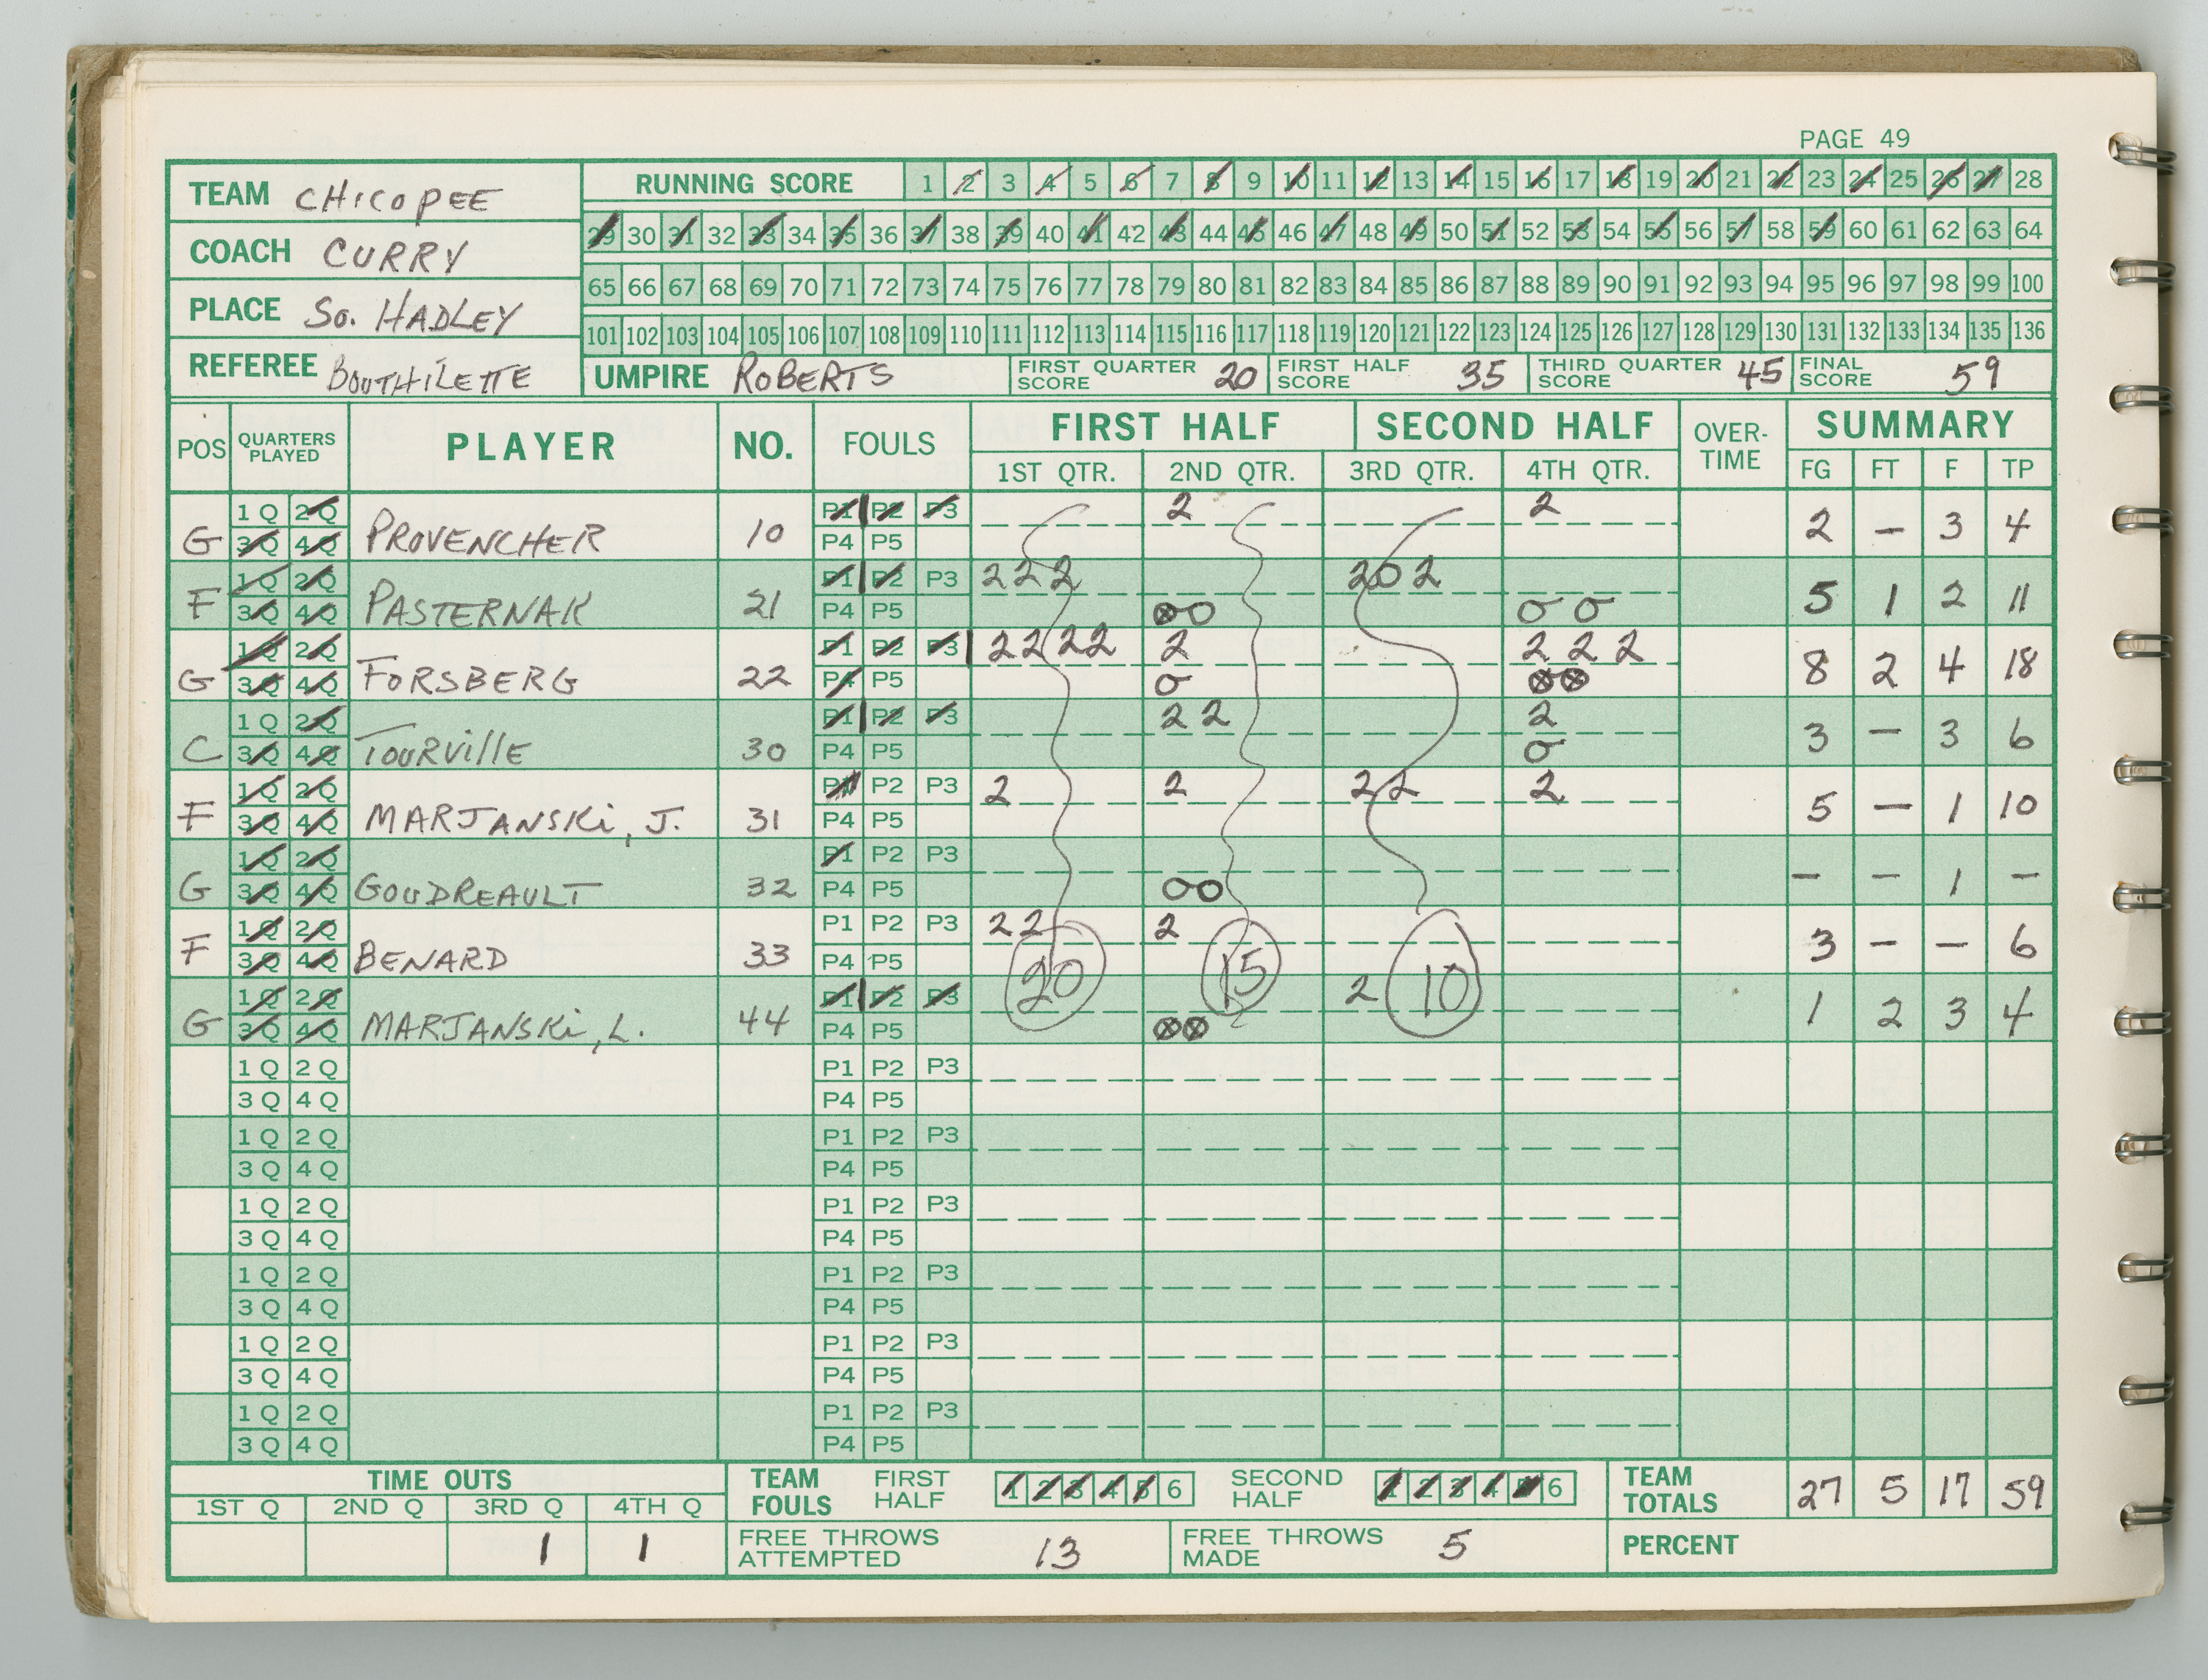 PAGE 49
TEAM CHICOPEE
COACH CURRY
PLACE So. HADLEY
REFEREE BOUTHILETTE
RUNNING SCORE 1 2 3 4 5 6 7 8 9 10 11 12 13 14 15 16 17 18 19 20 21 22 23 24 25 26 27 28
29 30 31 32 33 34 35 36 37 38 39 40 41 42 43 44 45 46 47 48 49 50 51 52 53 54 55 56 57 58 59 60 61 62 63 64
65 66 67 68 69 70 71 72 73 74 75 76 77 78 79 80 81 82 83 84 85 86 87 88 89 90 91 92 93 94 95 96 97 98 99 100
101 102 103 104 105 106 107 108 109 110 111 112 113 114 115 116 117 118 119 120 121 122 123 124 125 126 127 128 129 130 131 132 133 134 135 136
UMPIRE ROBERTS FIRST QUARTER SCORE 20 FIRST HALF SCORE 35 THIRD QUARTER SCORE 45 FINAL SCORE 59
POS QUARTERS PLAYED PLAYER NO. FOULS FIRST HALF SECOND HALF OVER-TIME SUMMARY
1ST QTR. 2ND QTR. 3RD QTR. 4TH QTR. FG FT F TP
1Q 2Q P1 P2 P3 2 2
G 3Q 4Q PROVENCHER 10 P4 P5 2 – 3 4
1Q 2Q P1 P2 P3 2 2 2 2 0 2
F 3Q 4Q PASTERNAK 21 P4 P5 ⊗O O O 5 1 2 11
1Q 2Q P1 P2 P3 2 2 2 2 2 2 2 2
G 3Q 4Q FORSBERG 22 P4 P5 O ⊗⊗ 8 2 4 18
1Q 2Q P1 P2 P3 2 2 2
C 3Q 4Q TOURVILLE 30 P4 P5 O 3 – 3 6
1Q 2Q P1 P2 P3 2 2 2 2 2
F 3Q 4Q MARJANSKI, J. 31 P4 P5 5 – 1 10
1Q 2Q P1 P2 P3
G 3Q 4Q GOUDREAULT 32 P4 P5 OO – – 1 –
1Q 2Q P1 P2 P3 2 2 2
F 3Q 4Q BENARD 33 P4 P5 3 – – 6
20 15 10
1Q 2Q P1 P2 P3 2
G 3Q 4Q MARJANSKI, L. 44 P4 P5 ⊗⊗ 1 2 3 4
1Q 2Q P1 P2 P3
3Q 4Q P4 P5
1Q 2Q P1 P2 P3
3Q 4Q P4 P5
1Q 2Q P1 P2 P3
3Q 4Q P4 P5
1Q 2Q P1 P2 P3
3Q 4Q P4 P5
1Q 2Q P1 P2 P3
3Q 4Q P4 P5
1Q 2Q P1 P2 P3
3Q 4Q P4 P5
TIME OUTS
1ST Q 2ND Q 3RD Q 4TH Q
1 1
TEAM FOULS FIRST HALF 1 2 3 4 5 6 SECOND HALF 1 2 3 4 5 6
TEAM TOTALS 27 5 17 59
FREE THROWS ATTEMPTED 13 FREE THROWS MADE 5 PERCENT